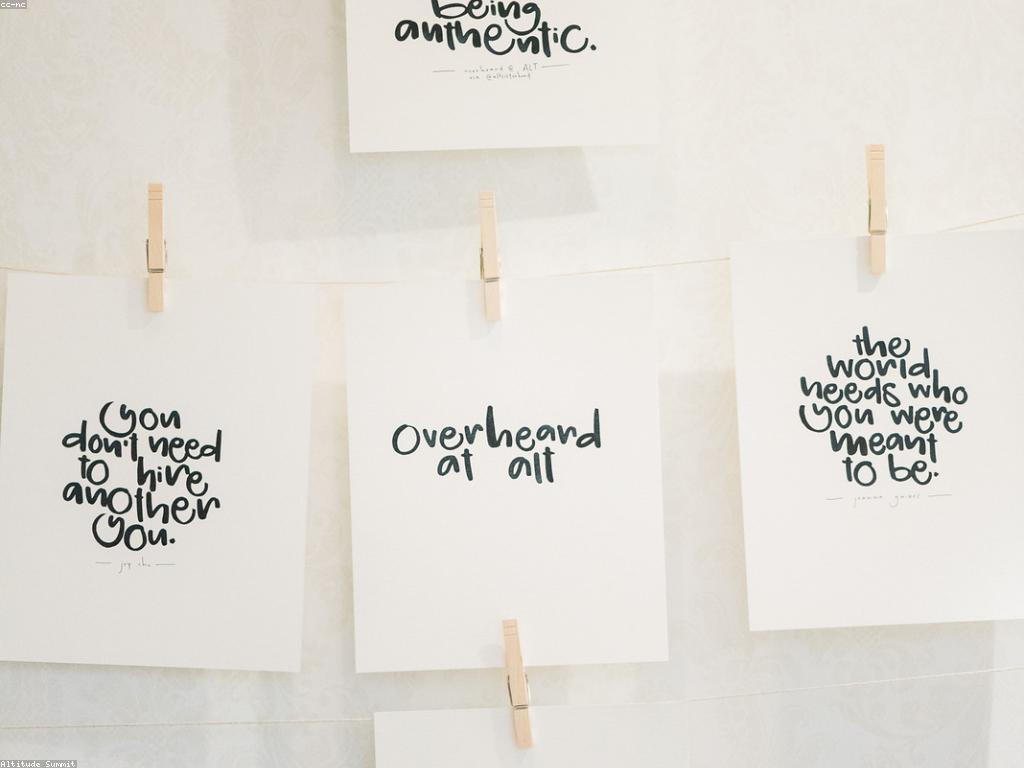 cc-nc
being
authentic.
overheard @ ALT
you
don't need
to hire
another
you.
joy cho
overheard
at alt
the
world
needs who
you were
meant
to be.
joanna gaines
Altitude Summit